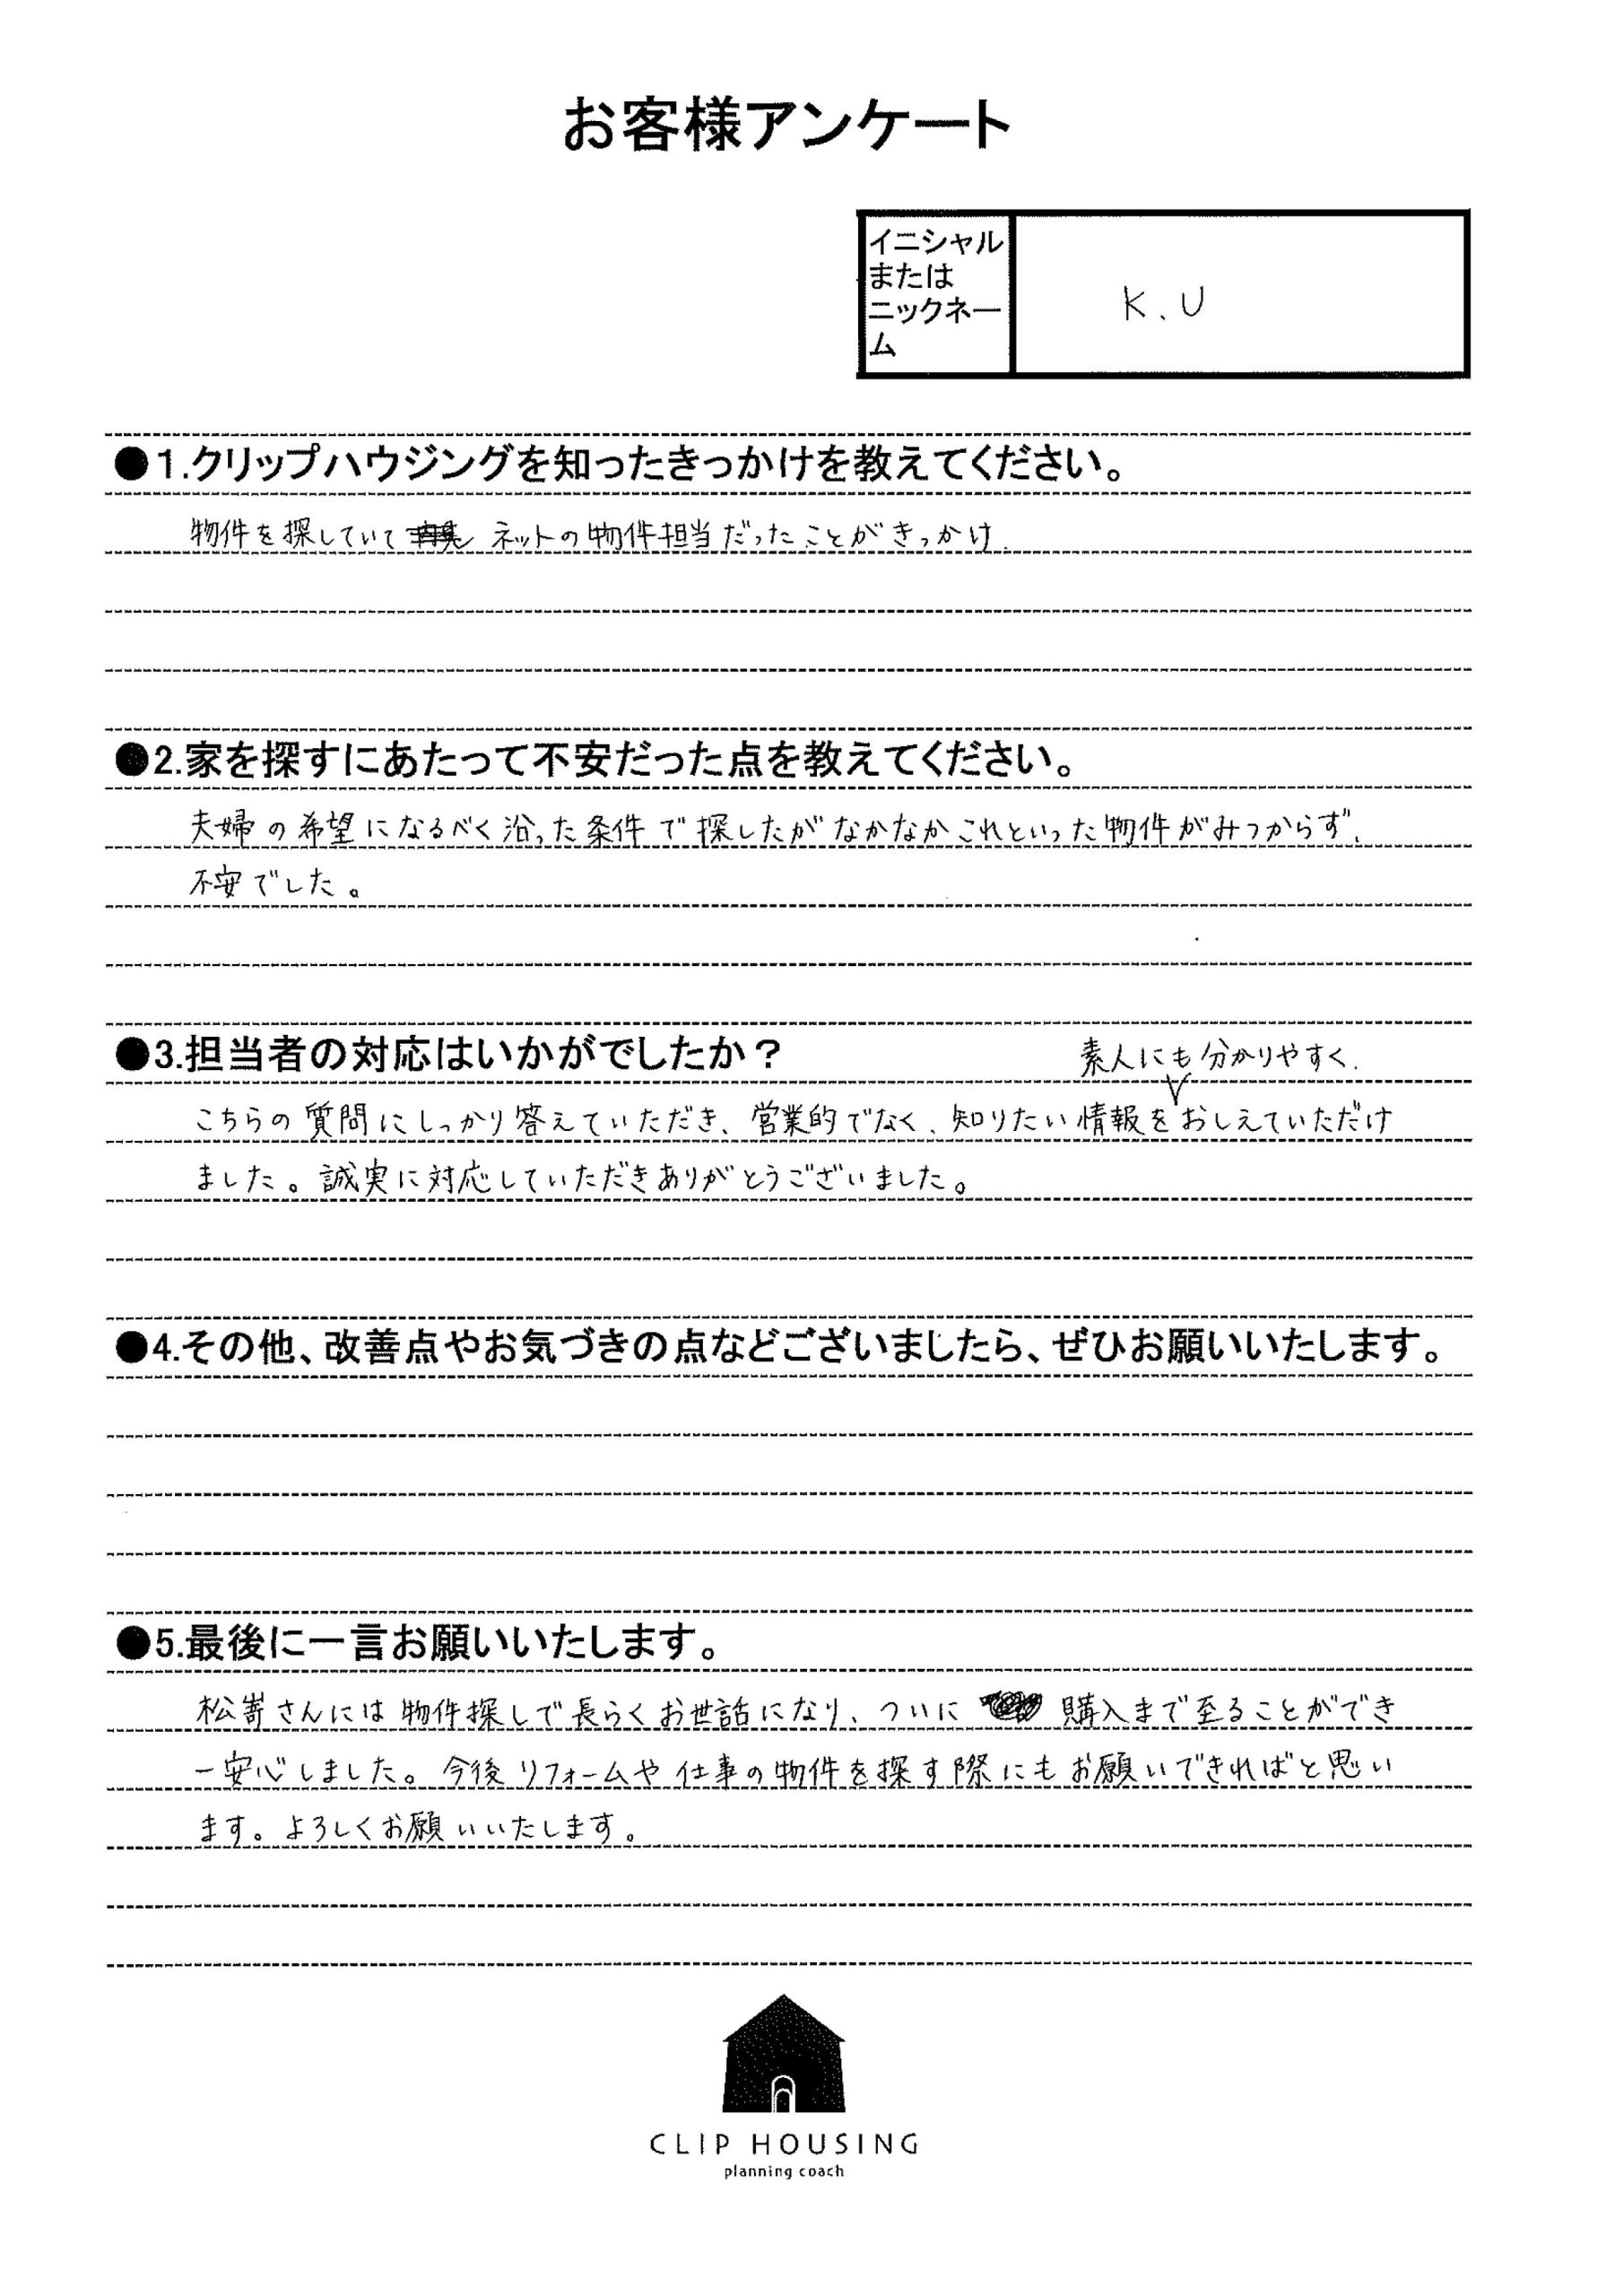 お客様アンケート
イニシャル
または
ニックネー
ム
K.U
●1.クリップハウジングを知ったきっかけを教えてください。
物件を探していて ネットの物件担当だったことがきっかけ.
●2.家を探すにあたって不安だった点を教えてください。
夫婦の希望になるべく沿った条件で探したがなかなかこれといった物件がみつからず、
不安でした。
●3.担当者の対応はいかがでしたか？
素人にも分かりやすく.
こちらの質問にしっかり答えていただき、営業的でなく、知りたい情報をおしえていただけ
ました。誠実に対応していただきありがとうございました。
●4.その他、改善点やお気づきの点などございましたら、ぜひお願いいたします。
●5.最後に一言お願いいたします。
松嵜さんには物件探しで長らくお世話になり、ついに 購入まで至ることができ
一安心しました。今後リフォームや仕事の物件を探す際にもお願いできればと思い
ます。よろしくお願いいたします。
CLIP HOUSING
planning coach